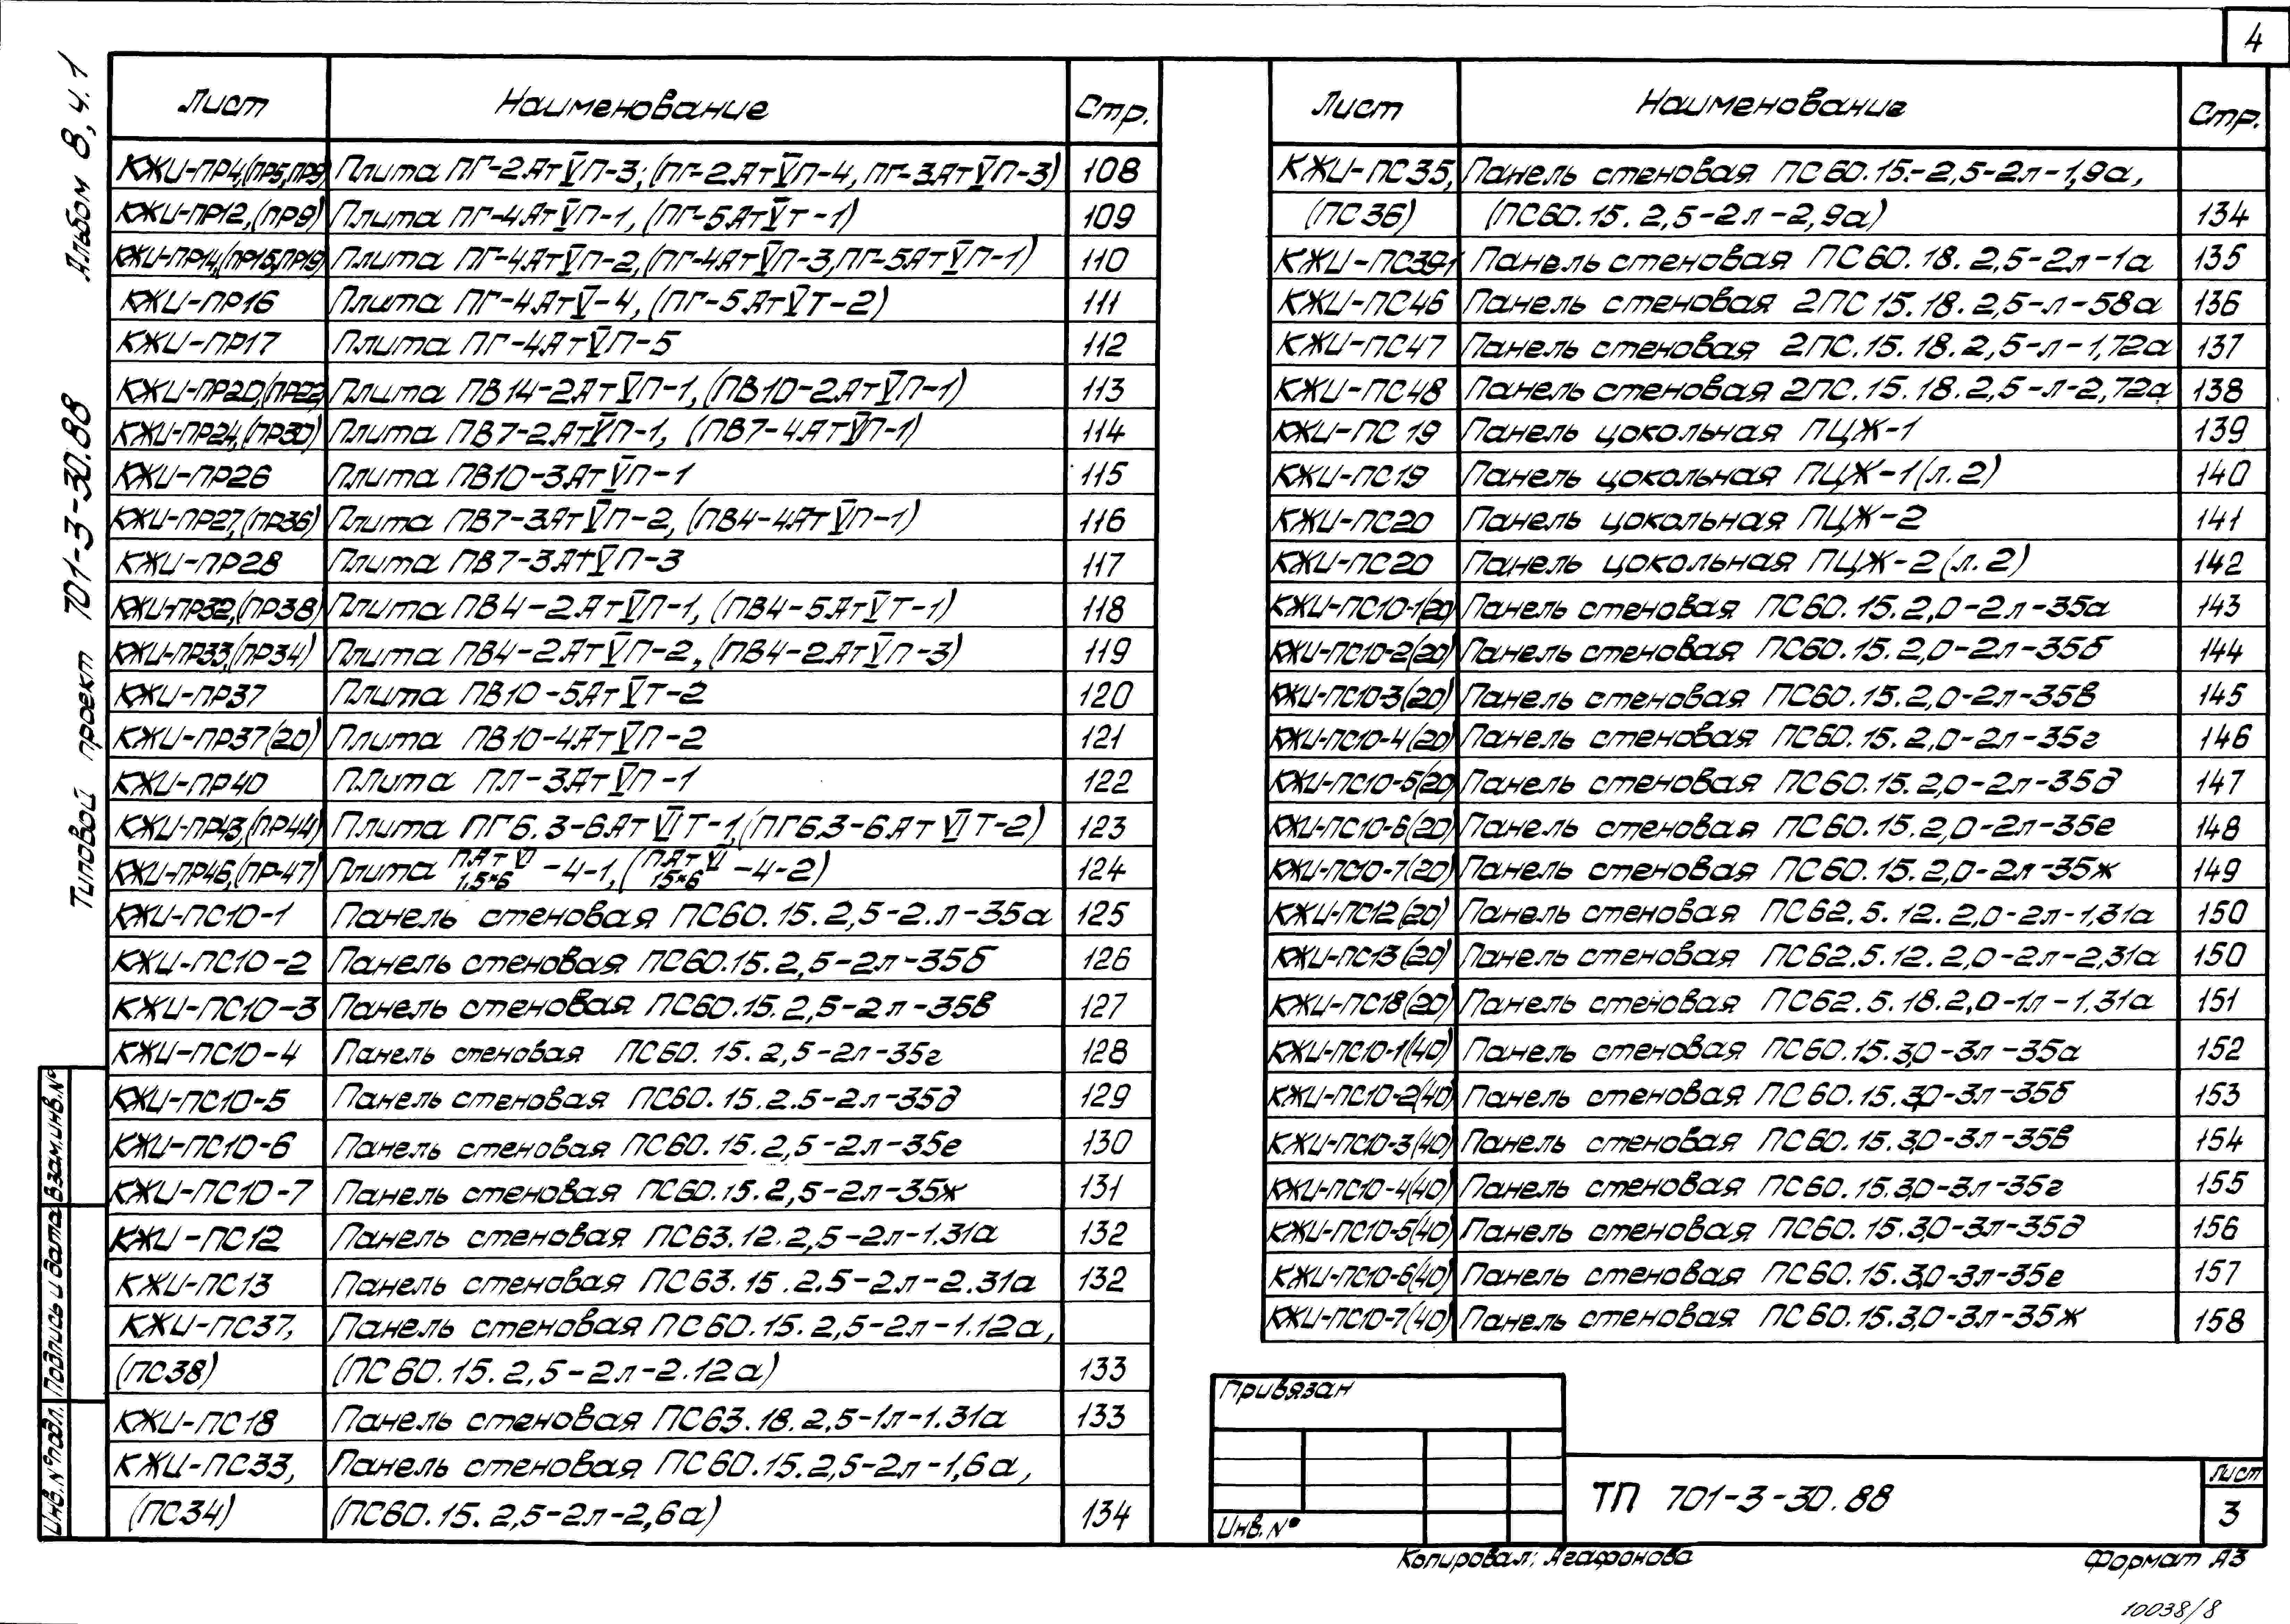 4
Альбом 8, ч.1
Типовой проект 701-3-30.88
Лист Наименование Стр.
КЖИ-ПР4,(ПР5,ПР9) Плита ПГ-2АтVП-3; (ПГ-2АтVП-4, ПГ-3АтVП-3) 108
КЖИ-ПР12,(ПР9) Плита ПГ-4АтVП-1, (ПГ-5АтVТ-1) 109
КЖИ-ПР14,(ПР15,ПР19) Плита ПГ-4АтVП-2,(ПГ-4АтVП-3,ПГ-5АтVП-1) 110
КЖИ-ПР16 Плита ПГ-4АтV-4, (ПГ-5АтVТ-2) 111
КЖИ-ПР17 Плита ПГ-4АтVП-5 112
КЖИ-ПР20,(ПР22) Плита ПВ14-2АтVП-1, (ПВ10-2АтVП-1) 113
КЖИ-ПР24,(ПР30) Плита ПВ7-2АтVП-1, (ПВ7-4АтVП-1) 114
КЖИ-ПР26 Плита ПВ10-3АтVП-1 115
КЖИ-ПР27,(ПР36) Плита ПВ7-3АтVП-2, (ПВ4-4АтVП-1) 116
КЖИ-ПР28 Плита ПВ7-3АтVП-3 117
КЖИ-ПР32,(ПР38) Плита ПВ4-2АтVП-1, (ПВ4-5АтVТ-1) 118
КЖИ-ПР33,(ПР34) Плита ПВ4-2АтVП-2, (ПВ4-2АтVП-3) 119
КЖИ-ПР37 Плита ПВ10-5АтVТ-2 120
КЖИ-ПР37(20) Плита ПВ10-4АтVП-2 121
КЖИ-ПР40 Плита ПЛ-3АтVП-1 122
КЖИ-ПР43,(ПР44) Плита ПГ6.3-6АтVIТ-1,(ПГ6.3-6АтVIТ-2) 123
КЖИ-ПР46,(ПР-47) Плита ПАтVI/1.5×6 -4-1, (ПАтVI/15×6 -4-2) 124
КЖИ-ПС10-1 Панель стеновая ПС60.15.2,5-2.л-35а 125
КЖИ-ПС10-2 Панель стеновая ПС60.15.2,5-2л-35б 126
КЖИ-ПС10-3 Панель стеновая ПС60.15.2,5-2л-35в 127
КЖИ-ПС10-4 Панель стеновая ПС60.15.2,5-2л-35г 128
КЖИ-ПС10-5 Панель стеновая ПС60.15.2.5-2л-35д 129
КЖИ-ПС10-6 Панель стеновая ПС60.15.2,5-2л-35е 130
КЖИ-ПС10-7 Панель стеновая ПС60.15.2,5-2л-35ж 131
КЖИ-ПС12 Панель стеновая ПС63.12.2,5-2л-1.31а 132
КЖИ-ПС13 Панель стеновая ПС63.15.2.5-2л-2.31а 132
КЖИ-ПС37, Панель стеновая ПС60.15.2,5-2л-1.12а,
(ПС38) (ПС60.15.2,5-2л-2.12а) 133
КЖИ-ПС18 Панель стеновая ПС63.18.2,5-1л-1.31а 133
КЖИ-ПС33, Панель стеновая ПС60.15.2,5-2л-1,6а,
(ПС34) (ПС60.15.2,5-2л-2,6а) 134
Лист Наименование Стр.
КЖИ-ПС35, Панель стеновая ПС60.15.-2,5-2л-1,9а,
(ПС36) (ПС60.15.2,5-2л-2,9а) 134
КЖИ-ПС39-1 Панель стеновая ПС60.18.2,5-2л-1а 135
КЖИ-ПС46 Панель стеновая 2ПС15.18.2,5-л-58а 136
КЖИ-ПС47 Панель стеновая 2ПС.15.18.2,5-л-1,72а 137
КЖИ-ПС48 Панель стеновая 2ПС.15.18.2,5-л-2,72а 138
КЖИ-ПС19 Панель цокольная ПЦЖ-1 139
КЖИ-ПС19 Панель цокольная ПЦЖ-1(л.2) 140
КЖИ-ПС20 Панель цокольная ПЦЖ-2 141
КЖИ-ПС20 Панель цокольная ПЦЖ-2(л.2) 142
КЖИ-ПС10-1(20) Панель стеновая ПС60.15.2,0-2л-35а 143
КЖИ-ПС10-2(20) Панель стеновая ПС60.15.2,0-2л-35б 144
КЖИ-ПС10-3(20) Панель стеновая ПС60.15.2,0-2л-35в 145
КЖИ-ПС10-4(20) Панель стеновая ПС60.15.2,0-2л-35г 146
КЖИ-ПС10-5(20) Панель стеновая ПС60.15.2,0-2л-35д 147
КЖИ-ПС10-6(20) Панель стеновая ПС60.15.2,0-2л-35е 148
КЖИ-ПС10-7(20) Панель стеновая ПС60.15.2,0-2л-35ж 149
КЖИ-ПС12(20) Панель стеновая ПС62.5.12.2,0-2л-1,31а 150
КЖИ-ПС13(20) Панель стеновая ПС62.5.12.2,0-2л-2,31а 150
КЖИ-ПС18(20) Панель стеновая ПС62.5.18.2,0-1л-1.31а 151
КЖИ-ПС10-1(40) Панель стеновая ПС60.15.3,0-3л-35а 152
КЖИ-ПС10-2(40) Панель стеновая ПС60.15.3,0-3л-35б 153
КЖИ-ПС10-3(40) Панель стеновая ПС60.15.3,0-3л-35в 154
КЖИ-ПС10-4(40) Панель стеновая ПС60.15.3,0-3л-35г 155
КЖИ-ПС10-5(40) Панель стеновая ПС60.15.3,0-3л-35д 156
КЖИ-ПС10-6(40) Панель стеновая ПС60.15.3,0-3л-35е 157
КЖИ-ПС10-7(40) Панель стеновая ПС60.15.3,0-3л-35ж 158
Инв.№подл. Подпись и дата Взам.инв.№
Привязан
Инв.№
ТП 701-3-30.88
Лист
3
Копировал: Агафонова
Формат А3
10038/8